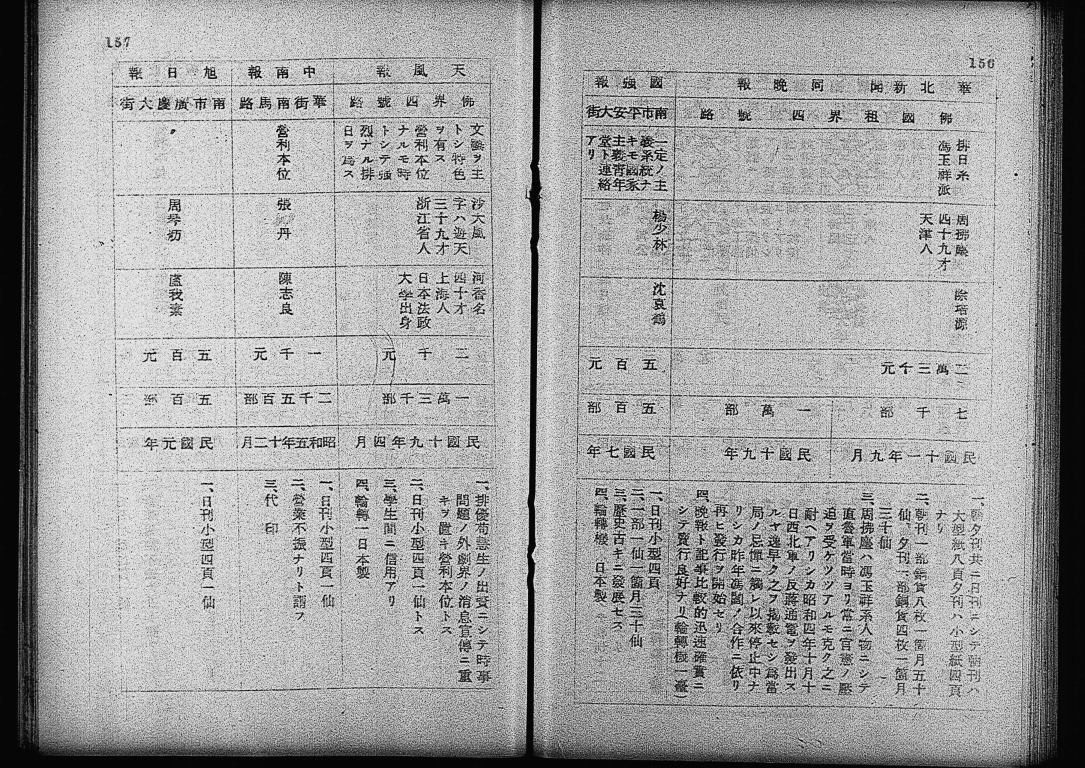 156
華北新聞
同晩報
國強報
佛國租界四號路
南市平安大街
排日系
馮玉祥派
一定ノ主
義系統ナ
キモ國家
主義青年
堂ト連絡
アリ
周拂塵
四十九才
天津人
楊少林
徐培源
沈哀鵑
二萬三千元
五百元
七千部
一萬部
五百部
民國十一年九月
民國十九年
民國七年
一、朝夕刊共ニ日刊ニシテ朝刊ハ
大型紙八頁夕刊ハ小型紙四頁
ナリ
二、朝刊一部銅貨八枚一箇月五十
仙、夕刊一部銅貨四枚一箇月
三十仙
三、周拂塵ハ馮玉祥系人物ニシテ
直魯軍當時ヨリ常ニ官憲ノ壓
迫ヲ受ケツツアルモ克ク之ニ
耐ヘアリシカ昭和四年十月十
日西北軍ノ反蔣通電ヲ發出ス
ルヤ逸早ク之ヲ掲載セシ爲當
局ノ忌憚ニ觸レ以來停止中ナ
リシカ昨年馮閻ノ合作ニ依リ
再ヒ發行ヲ開始セリ
四、晩報ト記事比較的迅速確實ニ
シテ賣行良好ナリ輪轉極一臺)
一、日刊小型四頁
二、一部一仙一箇月三十仙
三、歴史古キニ發展セス
四、輪轉機 日本製
157
天風報
中南報
旭日報
佛界四號路
華街南馬路
南市廣慶大街
文藝ヲ主
トシ特色
ヲ有ス
營利本位
ナルモ時
トシテ強
烈ナル排
日ヲ爲ス
營利本位
〃
沙大風
字ハ遊天
三十九才
浙江省人
張 丹
周琴舫
河香名
四十才
上海人
日本法政
大學出身
陳志良
盧我素
二千元
一千元
五百元
一萬三千部
二千五百部
五百部
民國十九年四月
昭和五年十二月
民國元年
一、排優荀慧生ノ出資ニシテ時事
問題ノ外劇界ノ消息宣傳ニ重
キヲ置キ營利本位トス
二、日刊小型四頁一仙トス
三、學生間ニ信用アリ
四、輪轉一日本製
一、日刊小型四頁一仙
二、營業不振ナリト謂フ
三、代 印
一、日刊小型四頁一仙